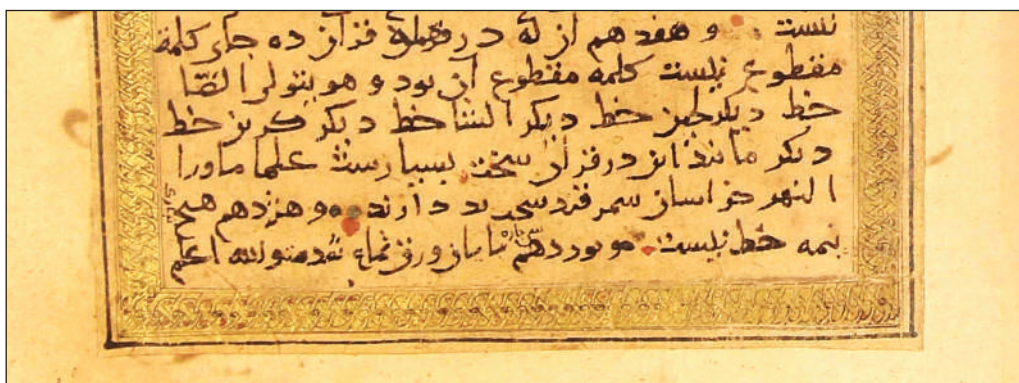 نیست و هفدهم از که در جمله قران ده جای کلمه
مقطوع نیست کلمه مقطوع ان بود و هو یتولی الصا
خط دیگر لحین خط دیگر النسا خط دیگر کریز خط
دیگر مانند این در قران سخت بسیارست علما ماورا
النهر خراسان سمرقند سخر بد دارند و هزدهم هیچ
نیمه خط نیست و نوزدهم تا پایان ورق تمام والله اعلم